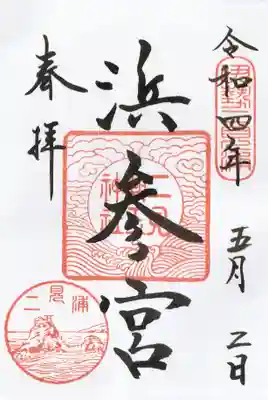 令和四年 五月 二日
浜参宮
奉拝
二見
神社
二見浦